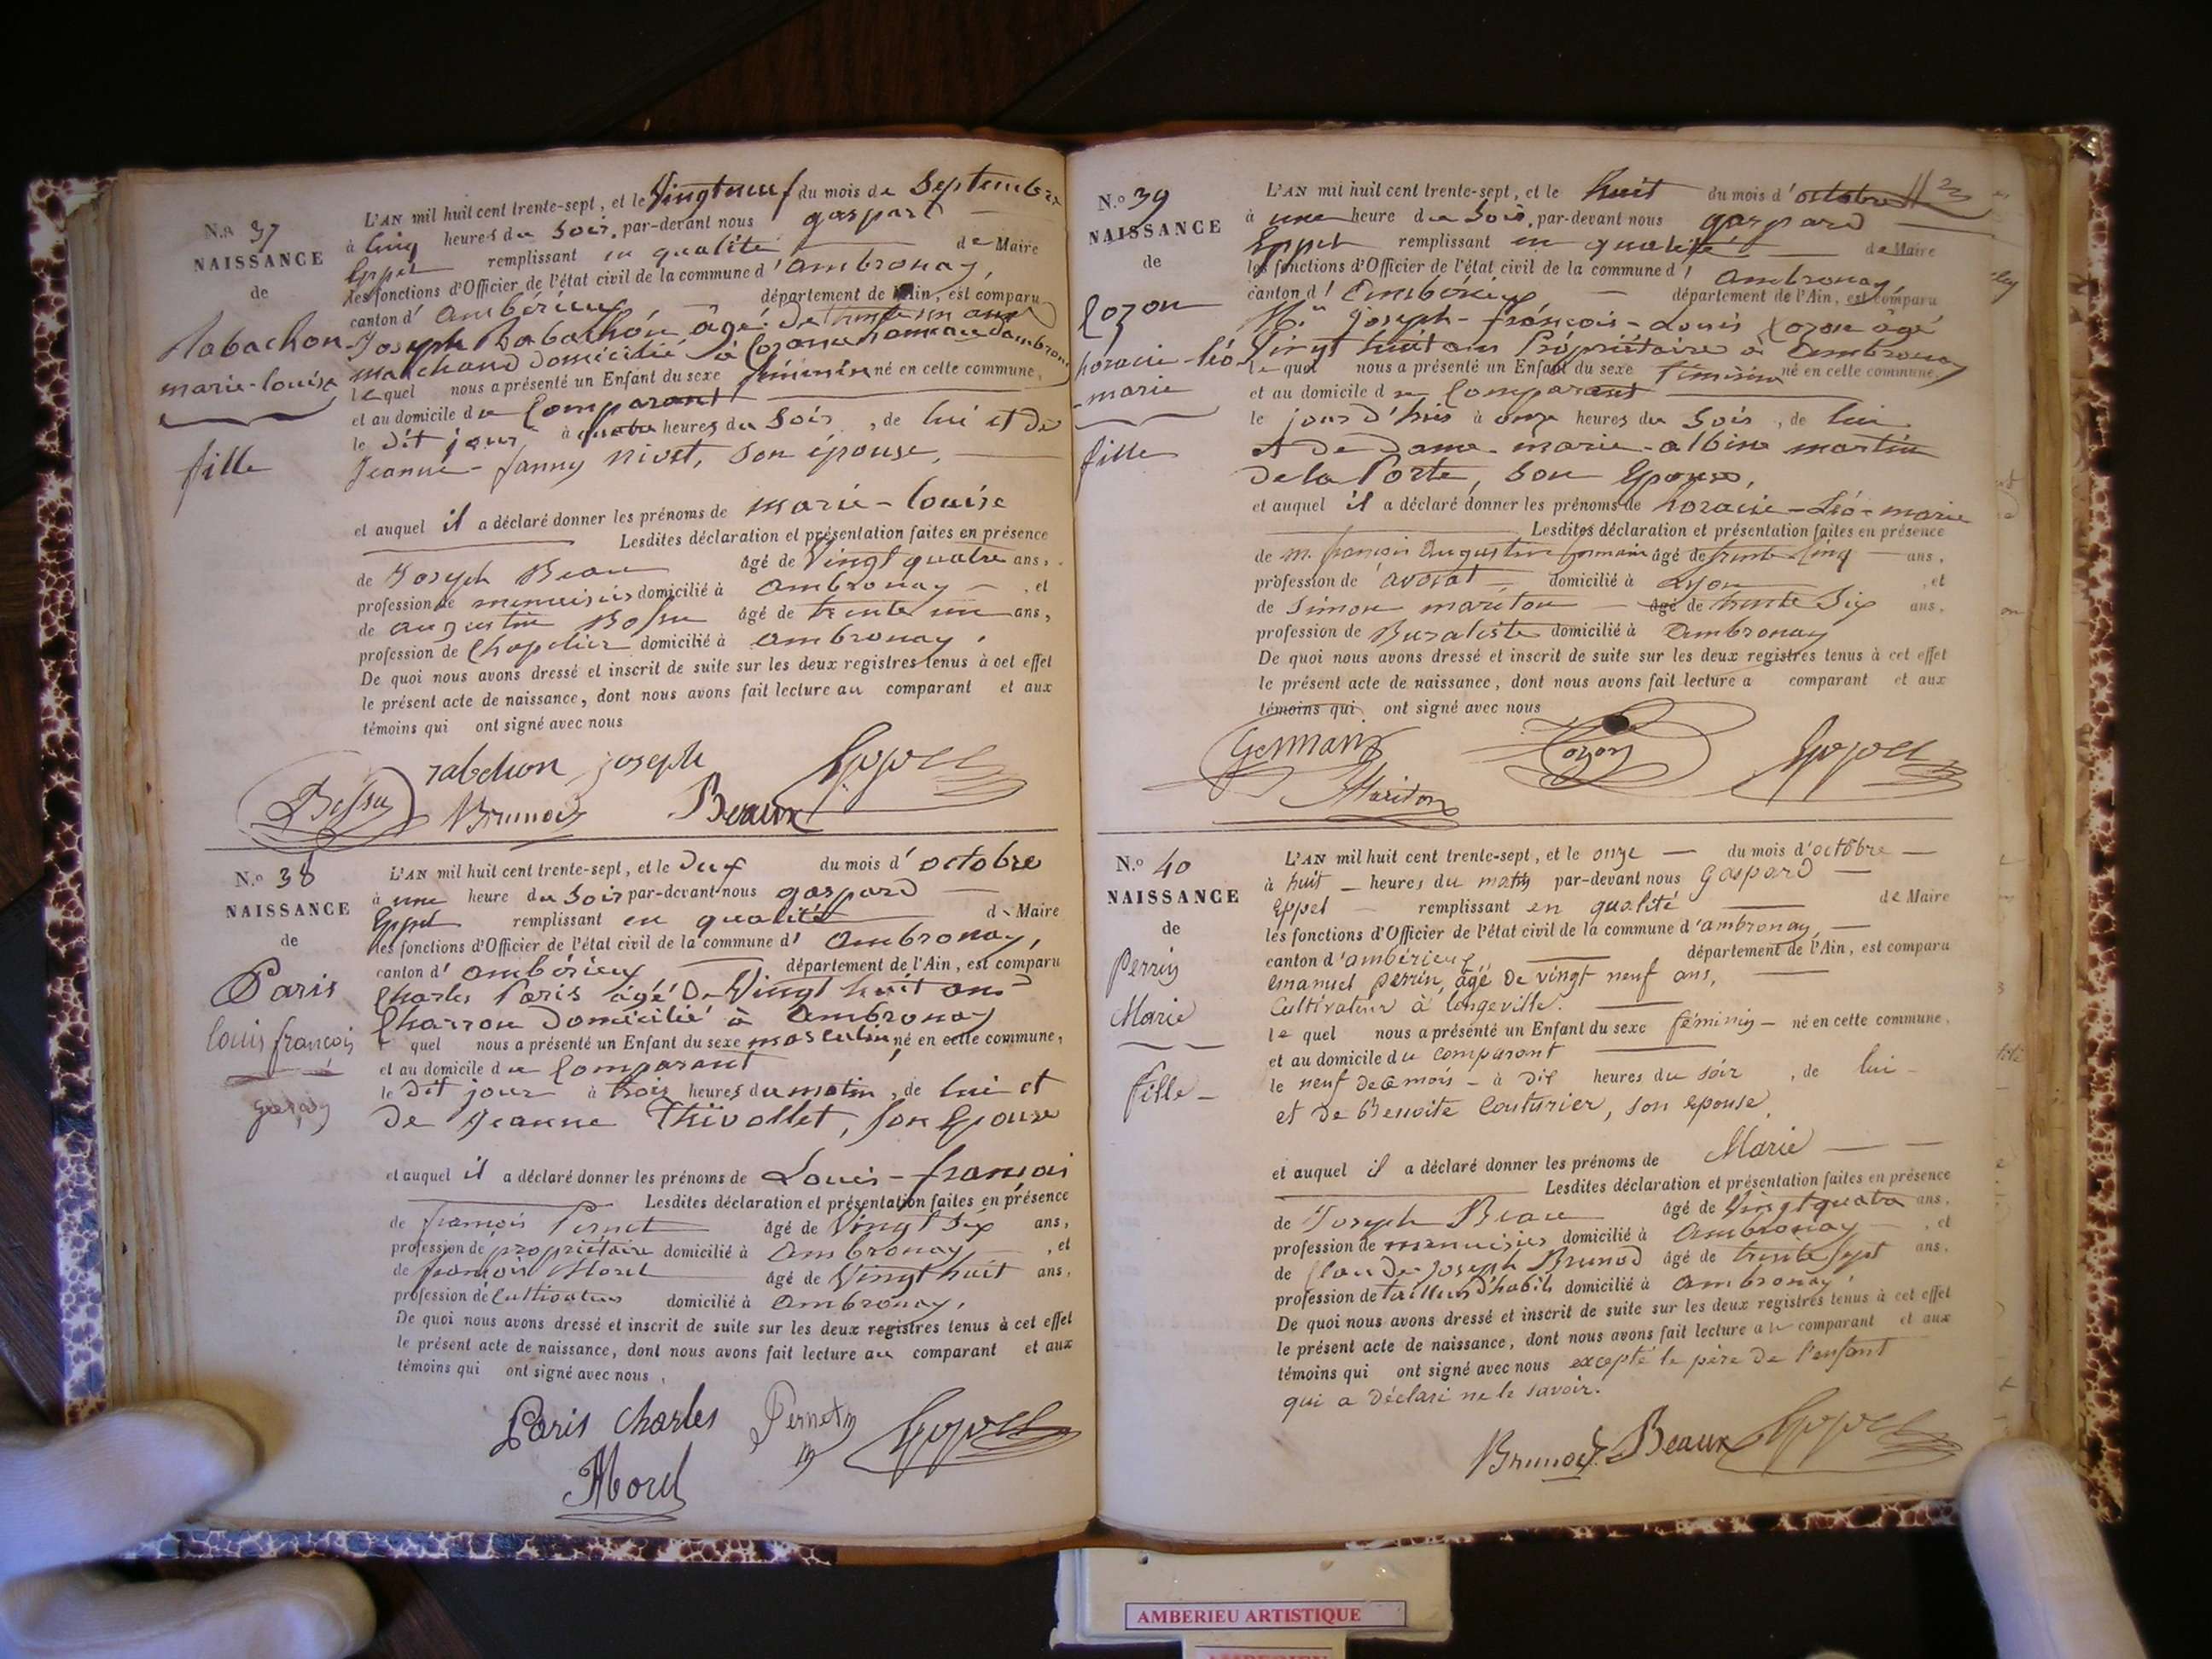 N.o 37
NAISSANCE
de
Rabachon
marie-louise
fille
L'AN mil huit cent trente-sept, et le Vingtneuf du mois de Septembre
à Cinq heures du Soir, par-devant nous gaspard
Eppel remplissant en qualité de Maire
les fonctions d'Officier de l'état civil de la commune d'ambronay,
canton d'ambérieux département de l'Ain, est comparu
Joseph Rabachon âgé de trente un ans
marchand domicilié à Cozance hameau d'ambronay
lequel nous a présenté un Enfant du sexe féminin né en cette commune,
et au domicile du Comparant
le dit jour à quatre heures du Soir, de lui et de
Jeanne-fanny nivet, Son épouse,
et auquel il a déclaré donner les prénoms de marie-louise
Lesdites déclaration et présentation faites en présence
de Joseph Beau âgé de Vingt quatre ans,
profession de menuisier domicilié à ambronay, et
de augustin Bossu âgé de trente un ans,
profession de Chapelier domicilié à ambronay.
De quoi nous avons dressé et inscrit de suite sur les deux registres tenus à cet effet
le présent acte de naissance, dont nous avons fait lecture au comparant et aux
témoins qui ont signé avec nous
rabchon joseph Eppel
Bossu Brunod Beaux
N.o 38
NAISSANCE
de
Paris
louis françois
L'AN mil huit cent trente-sept, et le deux du mois d'octobre
à une heure du Soir par-devant nous gaspard
Eppel remplissant en qualité de Maire
les fonctions d'Officier de l'état civil de la commune d'ambronay,
canton d'ambérieux département de l'Ain, est comparu
Charles Paris âgé de Vingt huit ans
Charron domicilié à ambronay
lequel nous a présenté un Enfant du sexe masculin né en cette commune,
et au domicile du Comparant
le dit jour à trois heures du matin, de lui et
de Jeanne Thivollet, son Epouse
et auquel il a déclaré donner les prénoms de Louis-françois
Lesdites déclaration et présentation faites en présence
de françois Pernet âgé de Vingt Six ans,
profession de propriétaire domicilié à ambronay, et
de françois Morel âgé de Vingt huit ans,
profession de Cultivateur domicilié à ambronay.
De quoi nous avons dressé et inscrit de suite sur les deux registres tenus à cet effet
le présent acte de naissance, dont nous avons fait lecture au comparant et aux
témoins qui ont signé avec nous,
Paris Charles Pernet Eppel
Morel
N.o 39
NAISSANCE
de
Cozon
horacie-léo
-marie
fille
L'AN mil huit cent trente-sept, et le huit du mois d'octobre
à une heure du Soir, par-devant nous gaspard
Eppel remplissant en qualité de Maire
les fonctions d'Officier de l'état civil de la commune d'ambronay,
canton d'ambérieux département de l'Ain, est comparu
Joseph-françois-Louis Cozon âgé
Vingt huit ans Propriétaire à ambronay
lequel nous a présenté un Enfant du sexe féminin né en cette commune,
et au domicile du Comparant
le jour d'hier à onze heures du Soir, de lui
et de dame marie-albine martin
de la Porte, Son Epouse,
et auquel il a déclaré donner les prénoms de horacie-Léo-marie
Lesdites déclaration et présentation faites en présence
de m. françois augustin germain âgé de trente Cinq ans,
profession de avocat domicilié à Lyon, et
de Simon mariton âgé de trente Six ans,
profession de Buraliste domicilié à ambronay
De quoi nous avons dressé et inscrit de suite sur les deux registres tenus à cet effet
le présent acte de naissance, dont nous avons fait lecture a comparant et aux
témoins qui ont signé avec nous
Germain Cozon Eppel
Mariton
N.o 40
NAISSANCE
de
Perrin
Marie
fille
L'AN mil huit cent trente-sept, et le onze du mois d'octobre
à huit heures du matin par-devant nous Gaspard
Eppel remplissant en qualité de Maire
les fonctions d'Officier de l'état civil de la commune d'ambronay,
canton d'ambérieux, département de l'Ain, est comparu
Emanuel Perrin, âgé de vingt neuf ans,
Cultivateur à longeville.
lequel nous a présenté un Enfant du sexe féminin né en cette commune,
et au domicile du comparant
le neuf de ce mois à dix heures du soir, de lui
et de Benoite Couturier, son epouse,
et auquel il a déclaré donner les prénoms de Marie
Lesdites déclaration et présentation faites en présence
de Joseph Beau âgé de Vingt quatre ans,
profession de menuisier domicilié à ambronay, et
de Claude Joseph Brunod âgé de trente Sept ans,
profession de tailleur d'habits domicilié à ambronay.
De quoi nous avons dressé et inscrit de suite sur les deux registres tenus à cet effet
le présent acte de naissance, dont nous avons fait lecture au comparant et aux
témoins qui ont signé avec nous excepté le père de l'enfant
qui a déclaré ne le savoir.
Brunod Beaux Eppel
AMBERIEU ARTISTIQUE